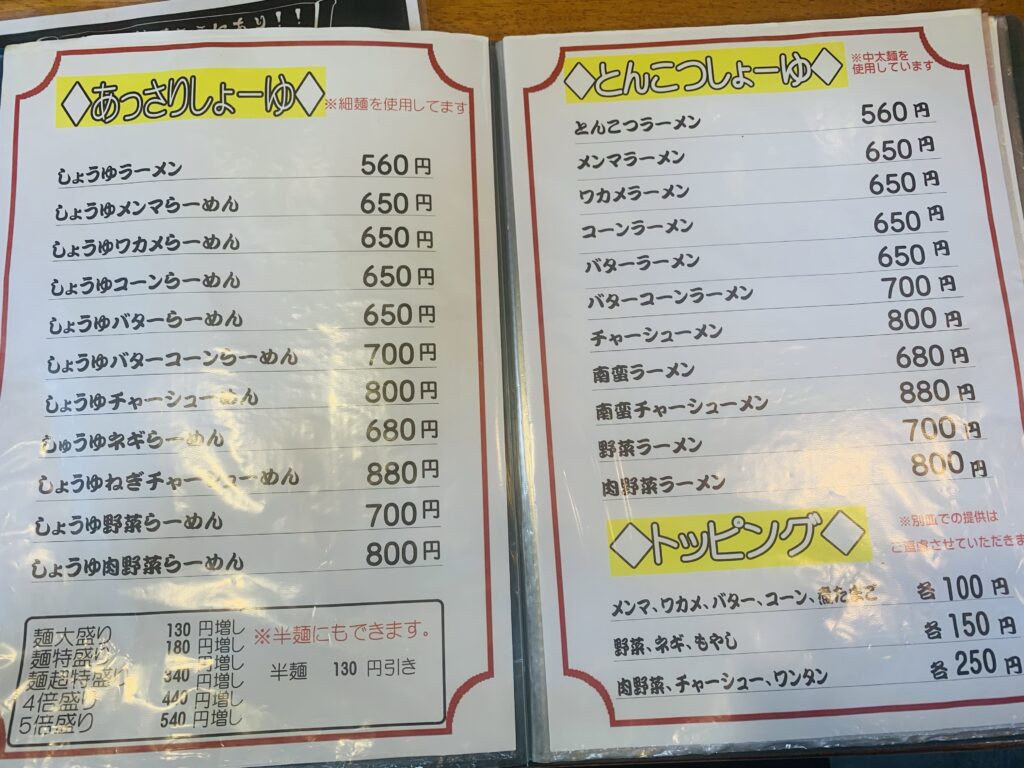 にあり!!
◇あっさりしょーゆ◇ ※細麺を使用してます
しょうゆラーメン 560円
しょうゆメンマらーめん 650円
しょうゆワカメらーめん 650円
しょうゆコーンらーめん 650円
しょうゆバターらーめん 650円
しょうゆバターコーンらーめん 700円
しょうゆチャーシューめん 800円
しゅうゆネギらーめん 680円
しょうゆねぎチャーシューめん 880円
しょうゆ野菜らーめん 700円
しょうゆ肉野菜らーめん 800円
麺大盛り 130円増し
麺特盛り 180円増し
麺超特盛り 340円増し
4倍盛り 440円増し
5倍盛り 540円増し
※半麺にもできます。
半麺 130円引き
◇とんこつしょーゆ◇
※中太麺を
使用しています
とんこつラーメン 560円
メンマラーメン 650円
ワカメラーメン 650円
コーンラーメン 650円
バターラーメン 650円
バターコーンラーメン 700円
チャーシューメン 800円
南蛮ラーメン 680円
南蛮チャーシューメン 880円
野菜ラーメン 700円
肉野菜ラーメン 800円
◇トッピング◇
※別皿での提供は
ご遠慮させていただきま
メンマ、ワカメ、バター、コーン、煮たまご 各100円
野菜、ネギ、もやし 各150円
肉野菜、チャーシュー、ワンタン 各250円